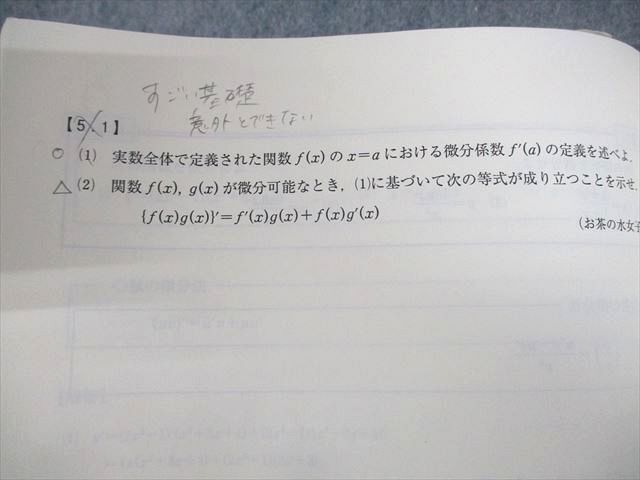 すごい基礎
意外とできない
【5.1】
○ (1) 実数全体で定義された関数 f(x) の x=a における微分係数 f′(a) の定義を述べよ.
△ (2) 関数 f(x), g(x) が微分可能なとき, (1)に基づいて次の等式が成り立つことを示せ.
{f(x)g(x)}′=f′(x)g(x)+f(x)g′(x)
(お茶の水女子